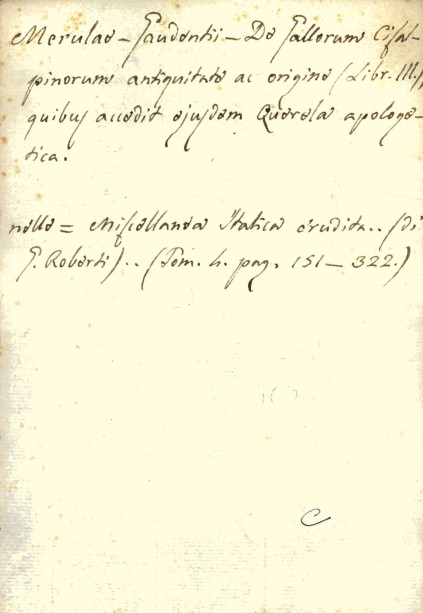 Merulae – Gaudentii – De Gallorum Cisal-
pinorum antiquitate ac origine (Libr. III.),
quibus accedit ejusdem Querela apologe-
tica.
nelle = Miscellanea Italica erudita.. (di
G. Roberti).. (Tom. 4. pag. 151 – 322.)
C